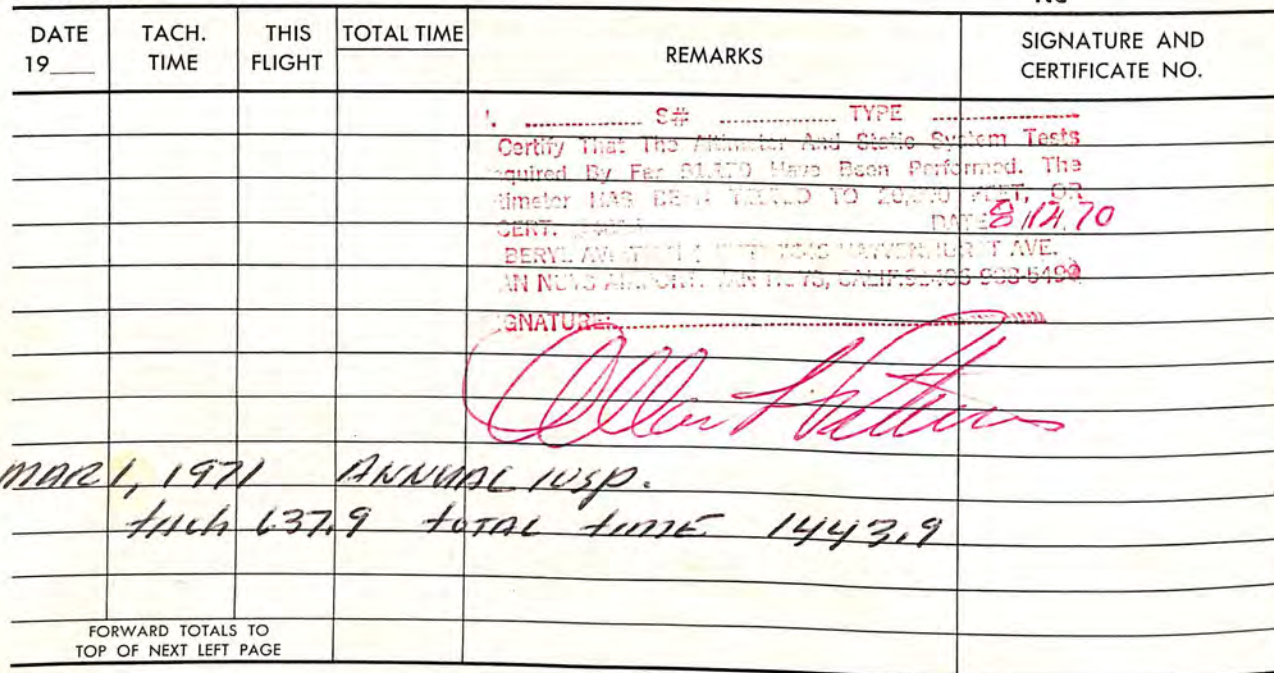 DATE
19
TACH.
TIME
THIS
FLIGHT
TOTAL TIME
REMARKS
SIGNATURE AND
CERTIFICATE NO.
S# TYPE
Certify That The Altimeter And Static System Tests
equired By Far Have Been Performed. The
timeter HAS BEEN TO FEET, OR
CERT. DATE 8 12 70
BERYL AVE.
AN NUYS AIRPORT, VAN NUYS, CALIF.
IGNATURE
MAR 1, 1971 ANNUAL INSP.
tach 637.9 TOTAL TIME 1443.9
FORWARD TOTALS TO
TOP OF NEXT LEFT PAGE